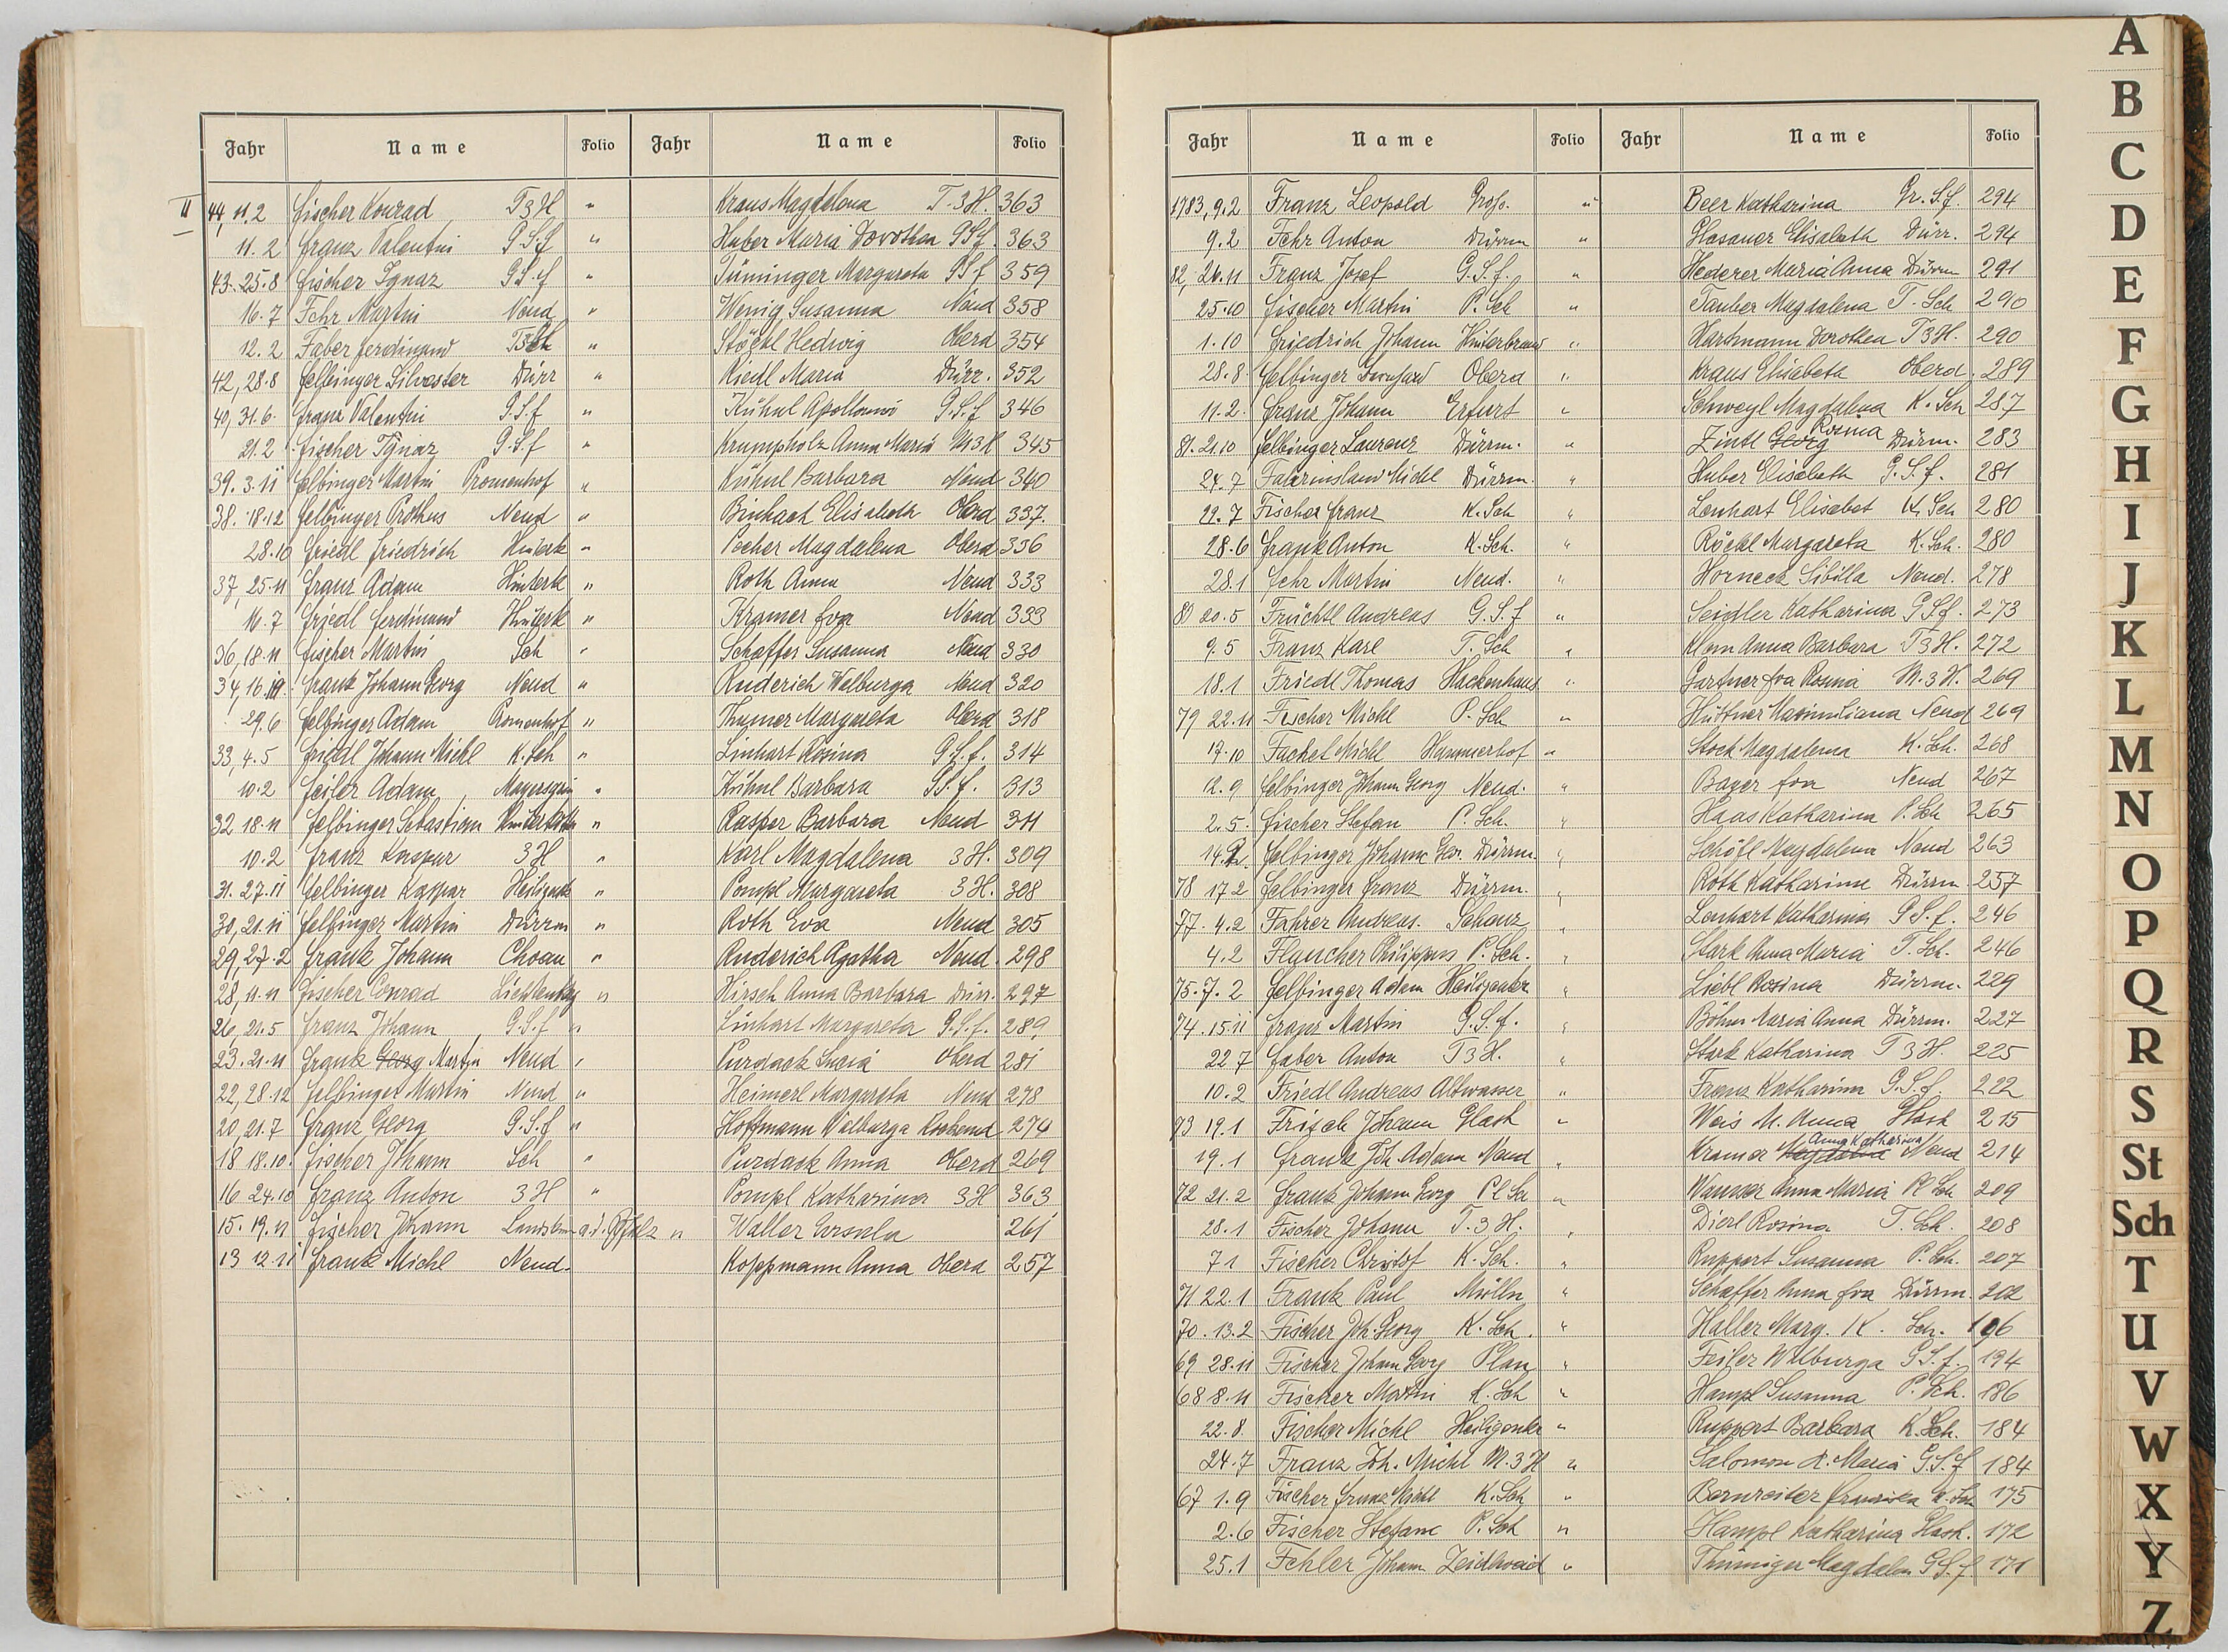 Jahr Name Folio Jahr Name Folio
II 44, 11.2 Fischer Konrad T3H " Kraus Magdalena T.3H. 363
11.2 Franz Valentin G S f " Huber Maria Dorothea GSf. 363
43. 25.8 Fischer Ignaz GS.f " Margareta GS.f 359
16.7 Fehr Martin Neud " Wenig Susanna Neud 358
12.2 Faber Ferdinand " Stöckl Hedwig Oberd 354
42, 28.8 Felbinger Silvester Dürr " Riedl Maria Dürr. 352
40, 31.6. Franz Valentin G.S.f " Kühnl Apollonia G.S.f 346
21.2 Fischer Ignaz G.S.f " Krumpholz Anna Maria M3H 345
39. 3.11 Felbinger Martin Promenhof " Kühnl Barbara Neud 340
38. 18.12 Felbinger Prothus Neud " Binhack Elisabeth Oberd 337.
28.10 Friedl Friedrich Hinterk " Pecher Magdalena Oberd 336
37, 25.11 Franz Adam Hinterk " Roth Anna Neud 333
16.7 Friedl Ferdinand Hinterk " Kramer Eva Neud 333
36, 18.11 Fischer Martin Sch " Schaffer Susanna Neud 330
34, 16. Frank Johann Georg Neud " Ruderich Walburga Neud 320
29.6 Felbinger Adam Promenhof " Thumer Margareta Oberd 318
33, 4.5 Friedl Johann Michl K.Sch " Linhart Rosina G.S.f. 314
10.2 Feiler Adam " Kühnl Barbara GS.f. 313
32 18.11 Felbinger Sebastian " Kasper Barbara Neud 311
10.2 Franz Kaspar 3H " Karl Magdalena 3H. 309
31. 27.11 Felbinger Kaspar Heiligenk " Pompl Margareta 3H. 308
30, 21.11 Felbinger Martin Dürrm " Roth Eva Neud 305
29, 27.2 Frank Johann Chodau " Ruderich Agatha Neud. 298
28, 11.11 Fischer Conrad " Hirsch Anna Barbara Dürr. 297
26, 21.5 Franz Johann G.S.f " Linhart Margareta G.S.f. 289,
23. 21.11 Frank Georg Martin Neud " Purdack Oberd 281
22, 28.12 Felbinger Martin Neud " Heimerl Margareta Neud 278
20, 21.7 Franz Georg G.S.f " Hoffmann Walburga 274
18 18.10. Fischer Johann Sch " Purdack Anna Oberd 269
16 24.10 Franz Anton 3H " Pompl Katharina 3H 363
15. 19.11 Fischer Johann a.d. Pfalz " Waller Ursula 261
13 12.11 Frank Michl Neud. Koppmann Anna Oberd 257
Jahr Name Folio Jahr Name Folio
1783, 9.2 Franz Leopold " Beer Katharina Gr.S.f. 294
9.2 Fehr Anton Dürrm " Glasauer Elisabeth Dürr. 294
82, 26.11 Franz Josef G.S.f. " Hederer Maria Anna Dürrm 291
25.10 Fischer Martin P.Sch " Tauber Magdalena T.Sch 290
1.10 Friedrich Johann " Hartmann Dorothea T3H. 290
28.8 Felbinger Bernhard Oberd " Kraus Elisabeta Oberd. 289
11.2 Franz Johann Erfurt " Schweyl Magdalena K.Sch 287
81. 21.10 Felbinger Laurenz Dürrm. " Zintl Georg Rosina Dürrm. 283
24.7 Michl Dürrm. " Huber Elisabeth G.S.f. 281
22.7 Fischer Franz K.Sch " Lenhart Elisabet K Sch 280
28.6 Frank Anton K.Sch. " Röckl Margareta K.Sch. 280
28.1 Fehr Martin Neud. " Horneck Sibilla Neud. 278
80 20.5 Früchtl Andreas G.S.f " Seidler Katharina GSf. 273
9.5 Franz Karl T.Sch " Klem Anna Barbara T3H. 272
18.1 Friedl Thomas Hackenhaus " Gartner Eva Rosina M.3H. 269
79 22.11 Fischer Michl P.Sch " Hüttner Maximiliana Neud 269
17.10 Fackel Michl Hammerhof " Stock Magdalena K.Sch. 268
12.9 Felbinger Johann Georg Neud. " Bayer Eva Neud 267
2.5. Fischer Stefan P.Sch. " Haas Katharina P.Sch 265
14.2. Felbinger Johann Geo. Dürrm. " Magdalena Neud 263
78 17.2 Felbinger Franz Dürrm. " Roth Katharina Dürrm. 257
77. 4.2 Fahrer Andreas. Schanz " Lenhart Katharina GS.f. 246
4.2 Flaucher Philippus P.Sch. " Stark Anna Maria T.Sch. 246
75. 7.2 Felbinger Adam Heiligenkr " Liebl Rosina Dürrm. 229
74. 15.11 Franz Martin G.S.f. " Böhm Maria Anna Dürrm. 227
22.7 Faber Anton T3H. " Stark Katharina T3H. 225
10.2 Friedl Andreas Altwasser " Franz Katharina G.S.f. 222
73 19.1 Frisch Johann " Weis M. Anna 215
19.1 Frank Joh Adam Neud " Kramer Magdalena Anna Katharina Neud 214
72 21.2 Frank Johann Georg Pl Sch " Wansser Anna Maria Pl Sch 209
28.1 Fischer Johann T.3H. " Dierl Rosina T.Sch. 208
7.1 Fischer Christof K.Sch. " Ruppert Susanna P.Sch. 207
71 22.1 Frank Paul Mölln " Schaffer Anna Eva Dürrm. 202
70. 13.2 Fischer Joh. Georg K.Sch. " Haller Marg. K. Sch. 196
69 28.11 Fischer Johann Georg Plan " Feiler Walburga GS.f. 194
68 8.11 Fischer Martin K.Sch " Hampl Susanna P.Sch. 186
22.8. Fischer Michl Heiligenkr " Ruppert Barbara K.Sch. 184
24.7 Franz Joh. Michl M.3H " Salomon A. Maria G.S.f 184
67 1.9 Fischer Franz Michl K.Sch " Bernreiter Franziska K.Sch 175
2.6 Fischer Stefan P.Sch " Hampl Katharina 172
25.1 Fehler Johann Zeidlweid " Magdalena GS.f 171
A
B
C
D
E
F
G
H
I
J
K
L
M
N
O
P
Q
R
S
St
Sch
T
U
V
W
X
Y
Z